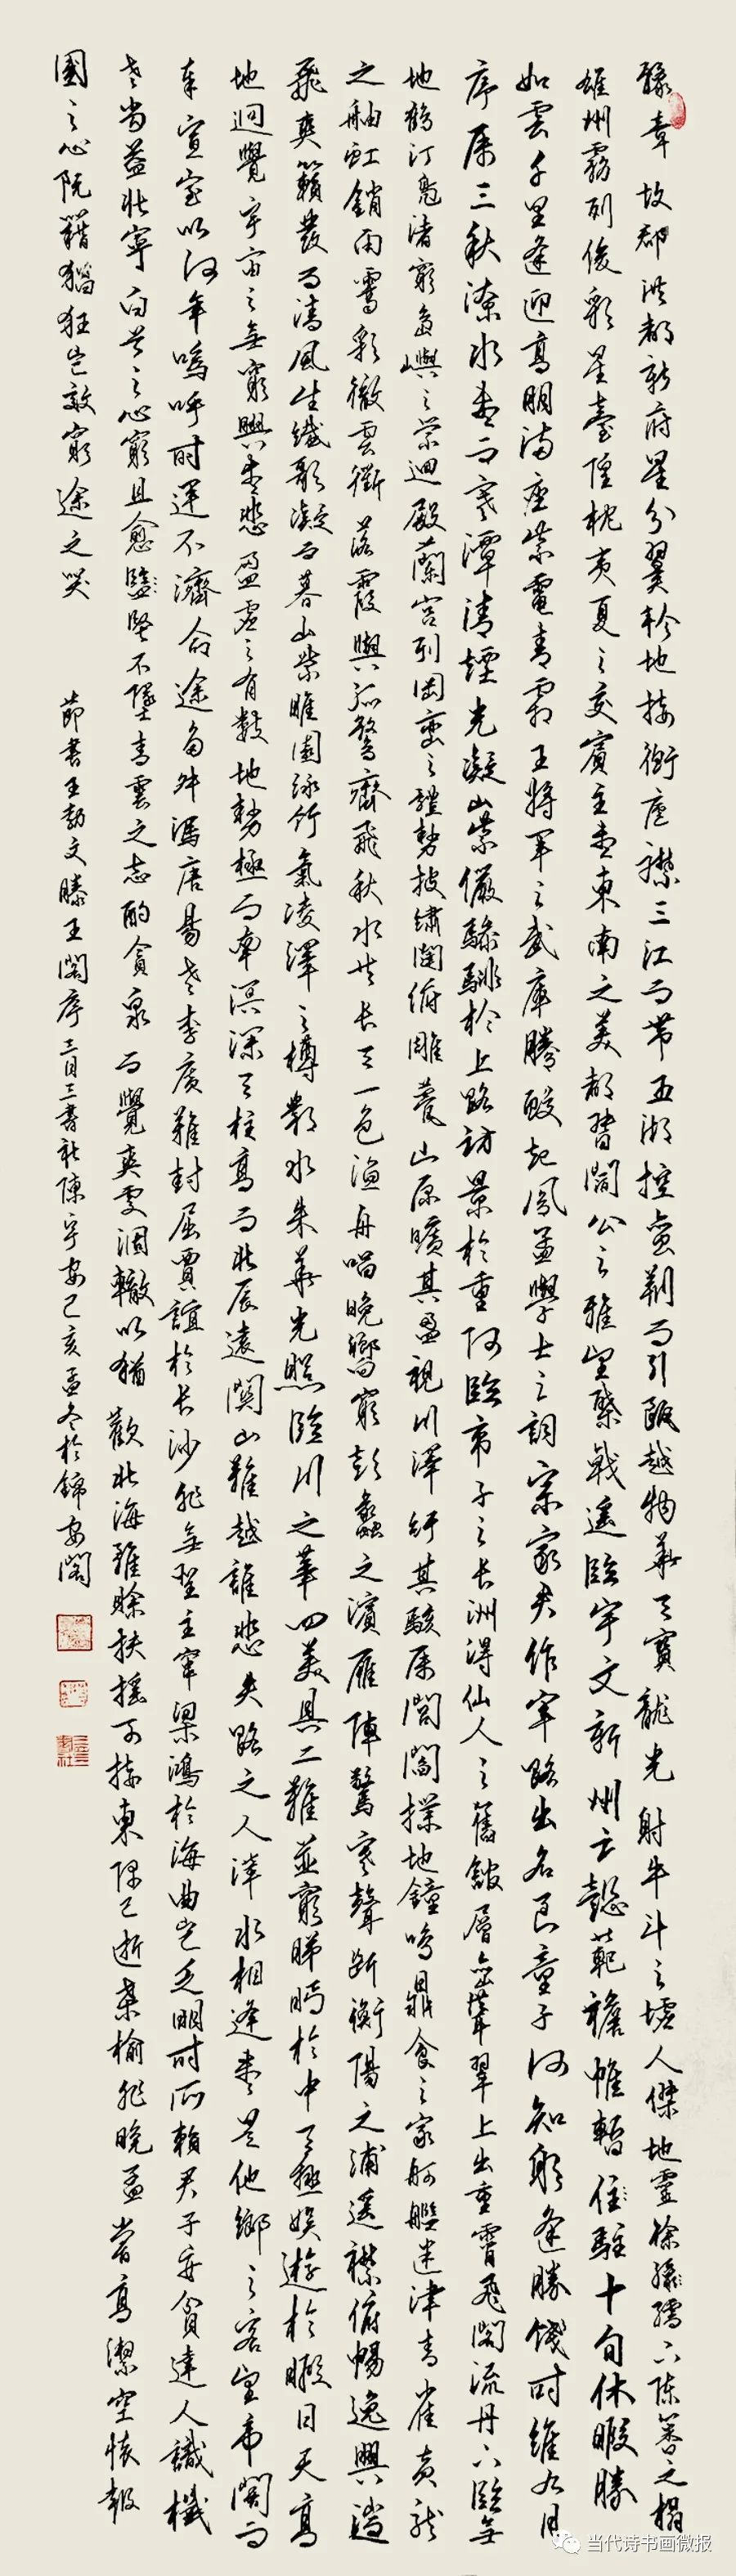 豫章故郡洪都新府星分翼軫地接衡廬襟三江而帶五湖控蠻荊而引甌越物華天寶龍光射牛斗之墟人傑地靈徐孺下陳蕃之榻
雄州霧列俊彩星臺隍枕夷夏之交賓主盡東南之美都督閻公之雅望棨戟遙臨宇文新州之懿範襜帷暫住駐十旬休暇勝
如雲千里逢迎高朋滿座紫電青霜王將軍之武庫騰蛟起鳳孟學士之詞宗家君作宰路出名區童子何知躬逢勝餞時維九月
序屬三秋潦水盡而寒潭清煙光凝山紫儼驂騑於上路訪景於重阿臨帝子之長洲得仙人之舊館層巒聳翠上出重霄飛閣流丹下臨無
地鶴汀鳧渚窮島嶼之縈迴殿蘭宮列岡巒之體勢披繡闥俯雕甍山原曠其盈視川澤紆其駭屬閭閻撲地鐘鳴鼎食之家舸艦迷津青雀黃龍
之舳虹銷雨霽彩徹雲衢落霞與孤鶩齊飛秋水共長天一色漁舟唱晚響窮彭蠡之濱雁陣驚寒聲斷衡陽之浦遙襟俯暢逸興遄
飛爽籟發而清風生纖歌凝而暮山紫睢園綠竹氣凌澤之樽鄴水朱華光照臨川之筆四美具二難並窮睇眄於中天極娛遊於暇日天高
地迥覺宇宙之無窮興盡悲盈虛之有數地勢極而南溟深天柱高而北辰遠關山難越誰悲失路之人萍水相逢盡是他鄉之客望帝閽而
奉宣室以何年嗚呼時運不濟命途多舛馮唐易老李廣難封屈賈誼於長沙非無聖主竄梁鴻於海曲豈乏明時所賴君子安貧達人識機
老當益壯寧白首之心窮且愈堅不墜青雲之志酌貪泉而覺爽處涸轍以猶歡北海雖賒扶搖可接東隅已逝桑榆非晚孟嘗高潔空懷報
國之心阮籍猖狂豈效窮途之哭
節書王勃文滕王閣序三月三書社陳宇安己亥孟冬於錦安閣
当代诗书画微报